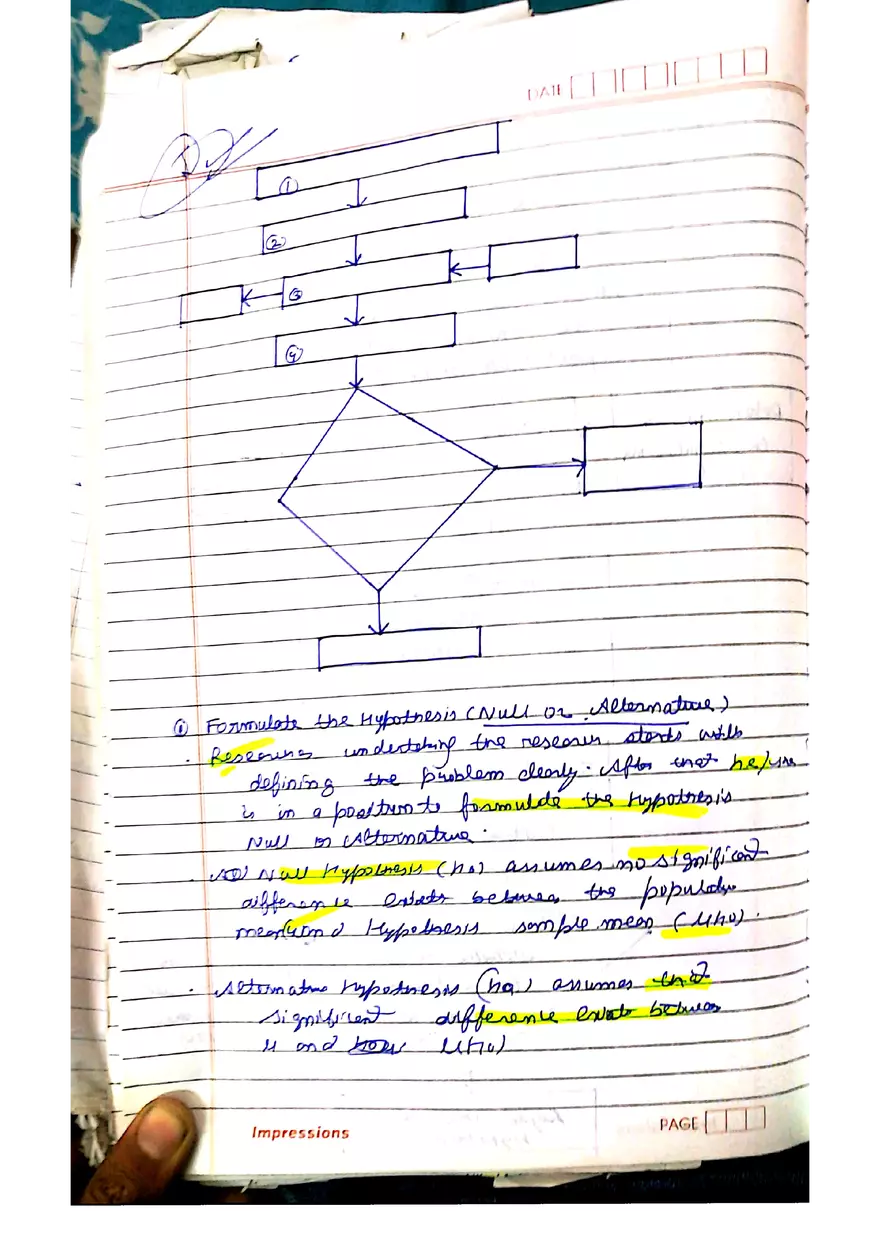 DATE
①
②
③
④
① Formulate the Hypothesis (Null or Alternative)
. undertaking the research starts with
defining the problem clearly. After that he/she
is in a position to formulate the Hypothesis
Null or Alternative.
. Null Hypothesis (ho) assumes no significant
difference exists between the population
mean and Hypothesis sample mean (μho).
. Alternative Hypothesis (ha) assumes that
significant difference exists between
μ and μho)
Impressions
PAGE